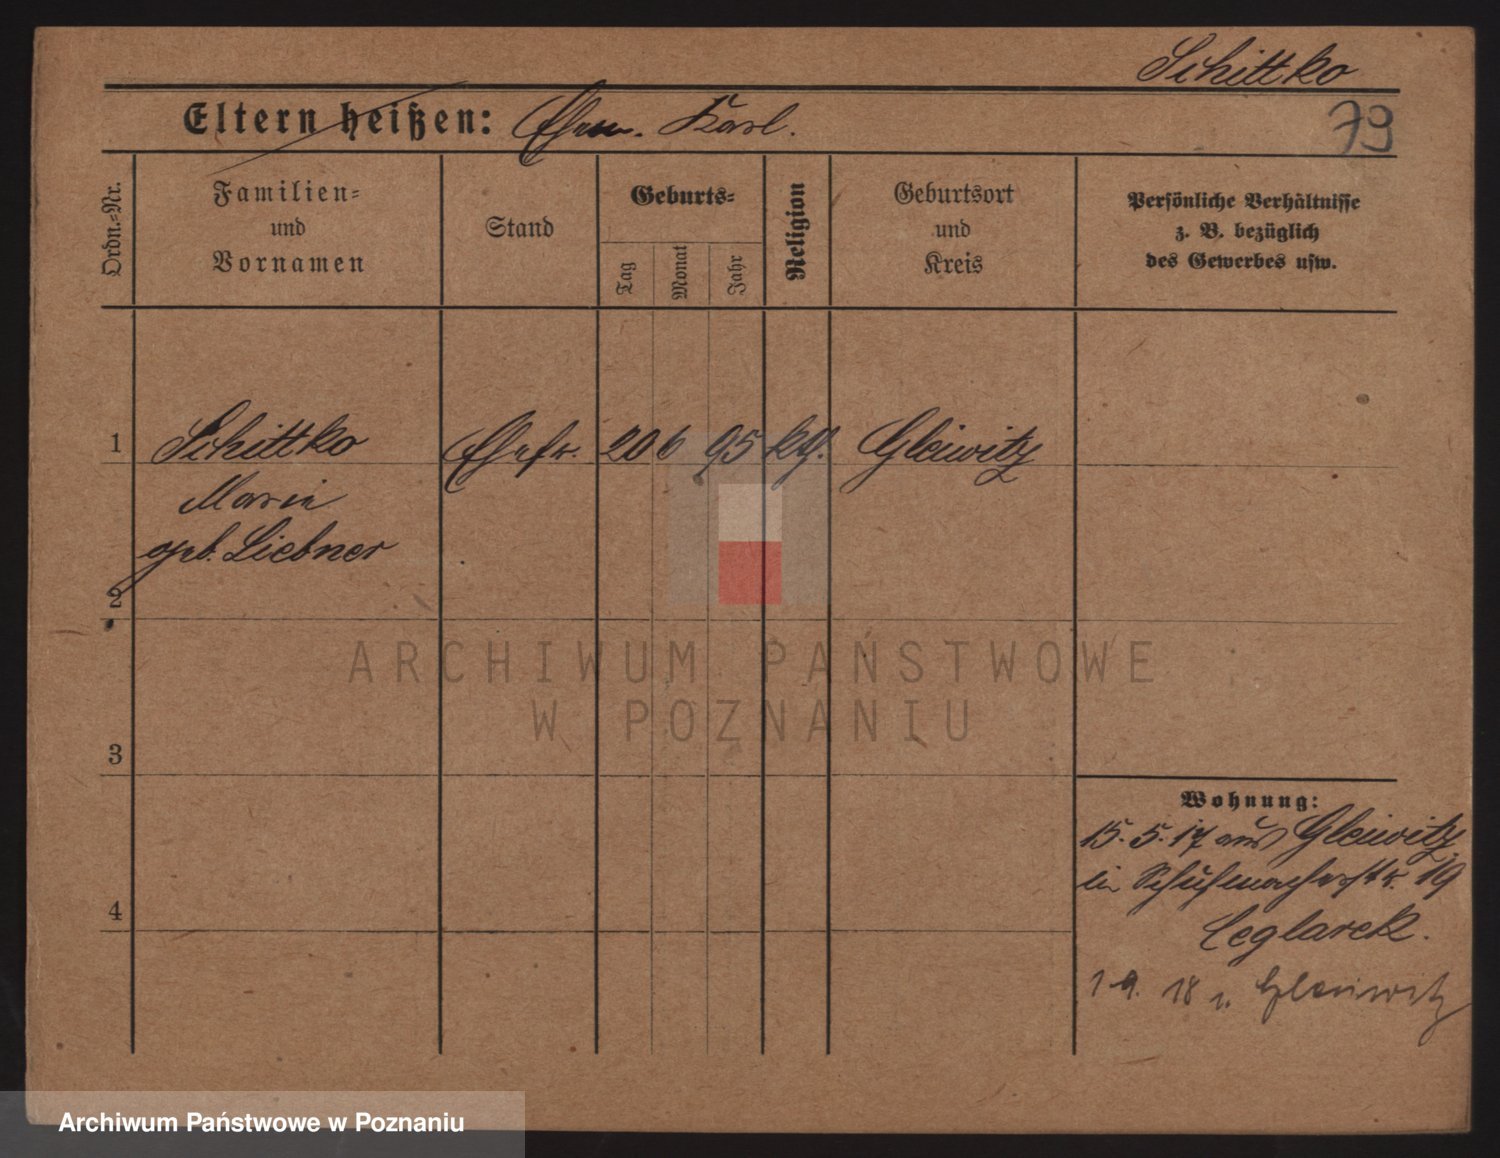 Schittko
Eltern heißen: Ehem. Karl.
79
Ordn.=Nr.
Familien=
und
Vornamen
Stand
Geburts=
Tag
Monat
Jahr
Religion
Geburtsort
und
Kreis
Persönliche Verhältnisse
z. B. bezüglich
des Gewerbes usw.
1 Schittko Ehefr. 20 6 95 kth. Gleiwitz
Marie
geb. Liebner
2
ARCHIWUM PAŃSTWOWE
W POZNANIU
3
Wohnung:
15. 5. 17 aus Gleiwitz
bei Schuhmacherstr. 19
Ceglarek.
4
1 9. 18 n. Gleiwitz
Archiwum Państwowe w Poznaniu